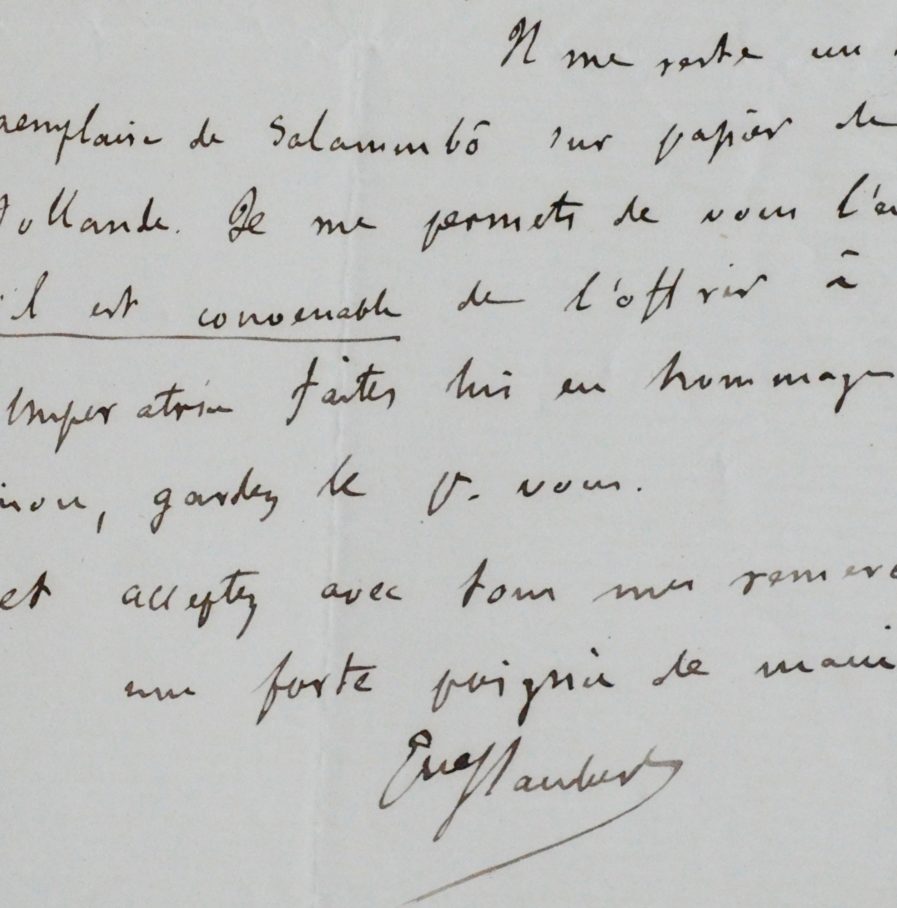 Il me reste un
xemplaire de Salammbô sur papier de
Hollande. Je me permets de vous l'en
'il est convenable de l'offrir à
Impératrice faites lui en hommage
sinon, gardez le p. vous.
et acceptez avec tous mes remerc
une forte poignée de main
Gve Flaubert